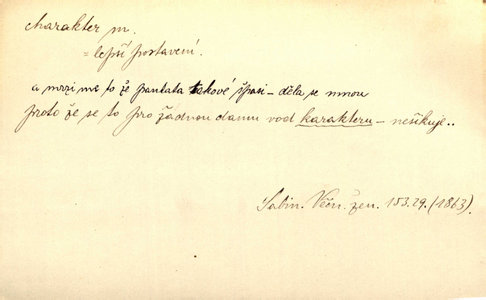 charakter m.
= lepší postavení.
a mrzí me to že pantata takové špasi – děla se mnou
proto že se to pro žadnou damu vod karakteru – nesikuje..
Sabin. Věčn. žen. 153.29. (1863).